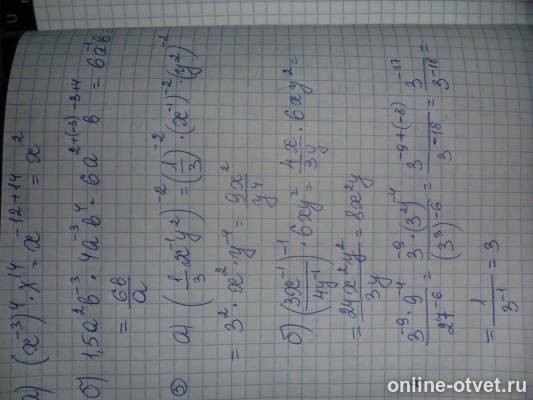 а) (x⁻³)⁴ · x¹⁴ = x⁻¹²⁺¹⁴ = x²
б) 1,5a²b⁻³ · 4a⁻³b⁴ = 6a²⁺⁽⁻³⁾ b⁻³⁺⁴ = 6a⁻¹b =
= 6b/a
③ а) (1/3 x⁻¹y²)⁻² = (1/3)⁻² · (x⁻¹)⁻² · (y²)⁻²
= 3² · x² · y⁻⁴ = 9x²/y⁴
б) (3x⁻¹/4y⁻¹)⁻¹ · 6xy² = 4x/3y · 6xy² =
= 24x²y²/3y = 8x²y
3⁻⁹ · 9⁻⁴/27⁻⁶ = 3⁻⁹ · (3²)⁻⁴/(3³)⁻⁶ = 3⁻⁹⁺⁽⁻⁸⁾/3⁻¹⁸ = 3⁻¹⁷/3⁻¹⁸ =
= 1/3⁻¹ = 3
online-otvet.ru